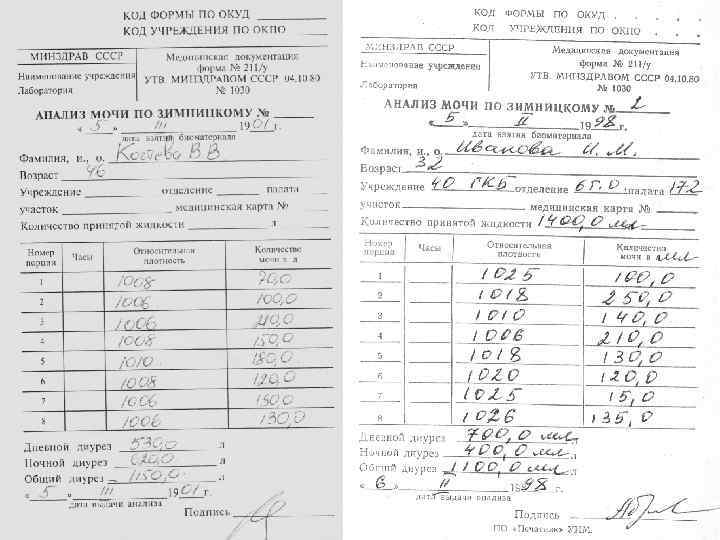 КОД ФОРМЫ ПО ОКУД
КОД УЧРЕЖДЕНИЯ ПО ОКПО
МИНЗДРАВ СССР
Наименование учреждения
Лаборатория
Медицинская документация
форма № 211/у
УТВ. МИНЗДРАВОМ СССР 04.10.80
№ 1030
АНАЛИЗ МОЧИ ПО ЗИМНИЦКОМУ №
« 5 » III 1901 г.
дата взятия биоматериала
Фамилия, и., о. В В
Возраст 46
Учреждение отделение палата
участок медицинская карта №
Количество принятой жидкости л
Номер порции Часы Относительная плотность Количество мочи в л
1 1008 70,0
2 1006 100,0
3 1006 210,0
4 1008 150,0
5 1010 180,0
6 1008 120,0
7 1006
8 1006 130,0
Дневной диурез 530,0 л
Ночной диурез 620,0 л
Общий диурез 1150,0 л
« 5 » III 1901 г.
дата выдачи анализа
Подпись
КОД ФОРМЫ ПО ОКУД . . . .
КОД УЧРЕЖДЕНИЯ ПО ОКПО . . .
МИНЗДРАВ СССР
Наименование учреждения
Лаборатория
Медицинская документация
форма № 211/у
УТВ. МИНЗДРАВОМ СССР 04.10.80
№ 1030
АНАЛИЗ МОЧИ ПО ЗИМНИЦКОМУ № 2
« 5 » II 1998 г.
дата взятия биоматериала
Фамилия, и., о. Иванова И. М.
Возраст 32
Учреждение 40 ГКБ отделение 6 Г.О палата 172
участок медицинская карта №
Количество принятой жидкости 1400,0 мл
Номер порции Часы Относительная плотность Количество мочи в мл
1 1025 100,0
2 1018 250,0
3 1010 140,0
4 1006 210,0
5 1018 130,0
6 1020 120,0
7 1025 15,0
8 1026 135,0
Дневной диурез 700,0 мл
Ночной диурез 400,0 мл л
Общий диурез 1100,0 мл
« 6 » II 1998 г.
дата выдачи анализа
Подпись
ПО «Печатник» УНМ.